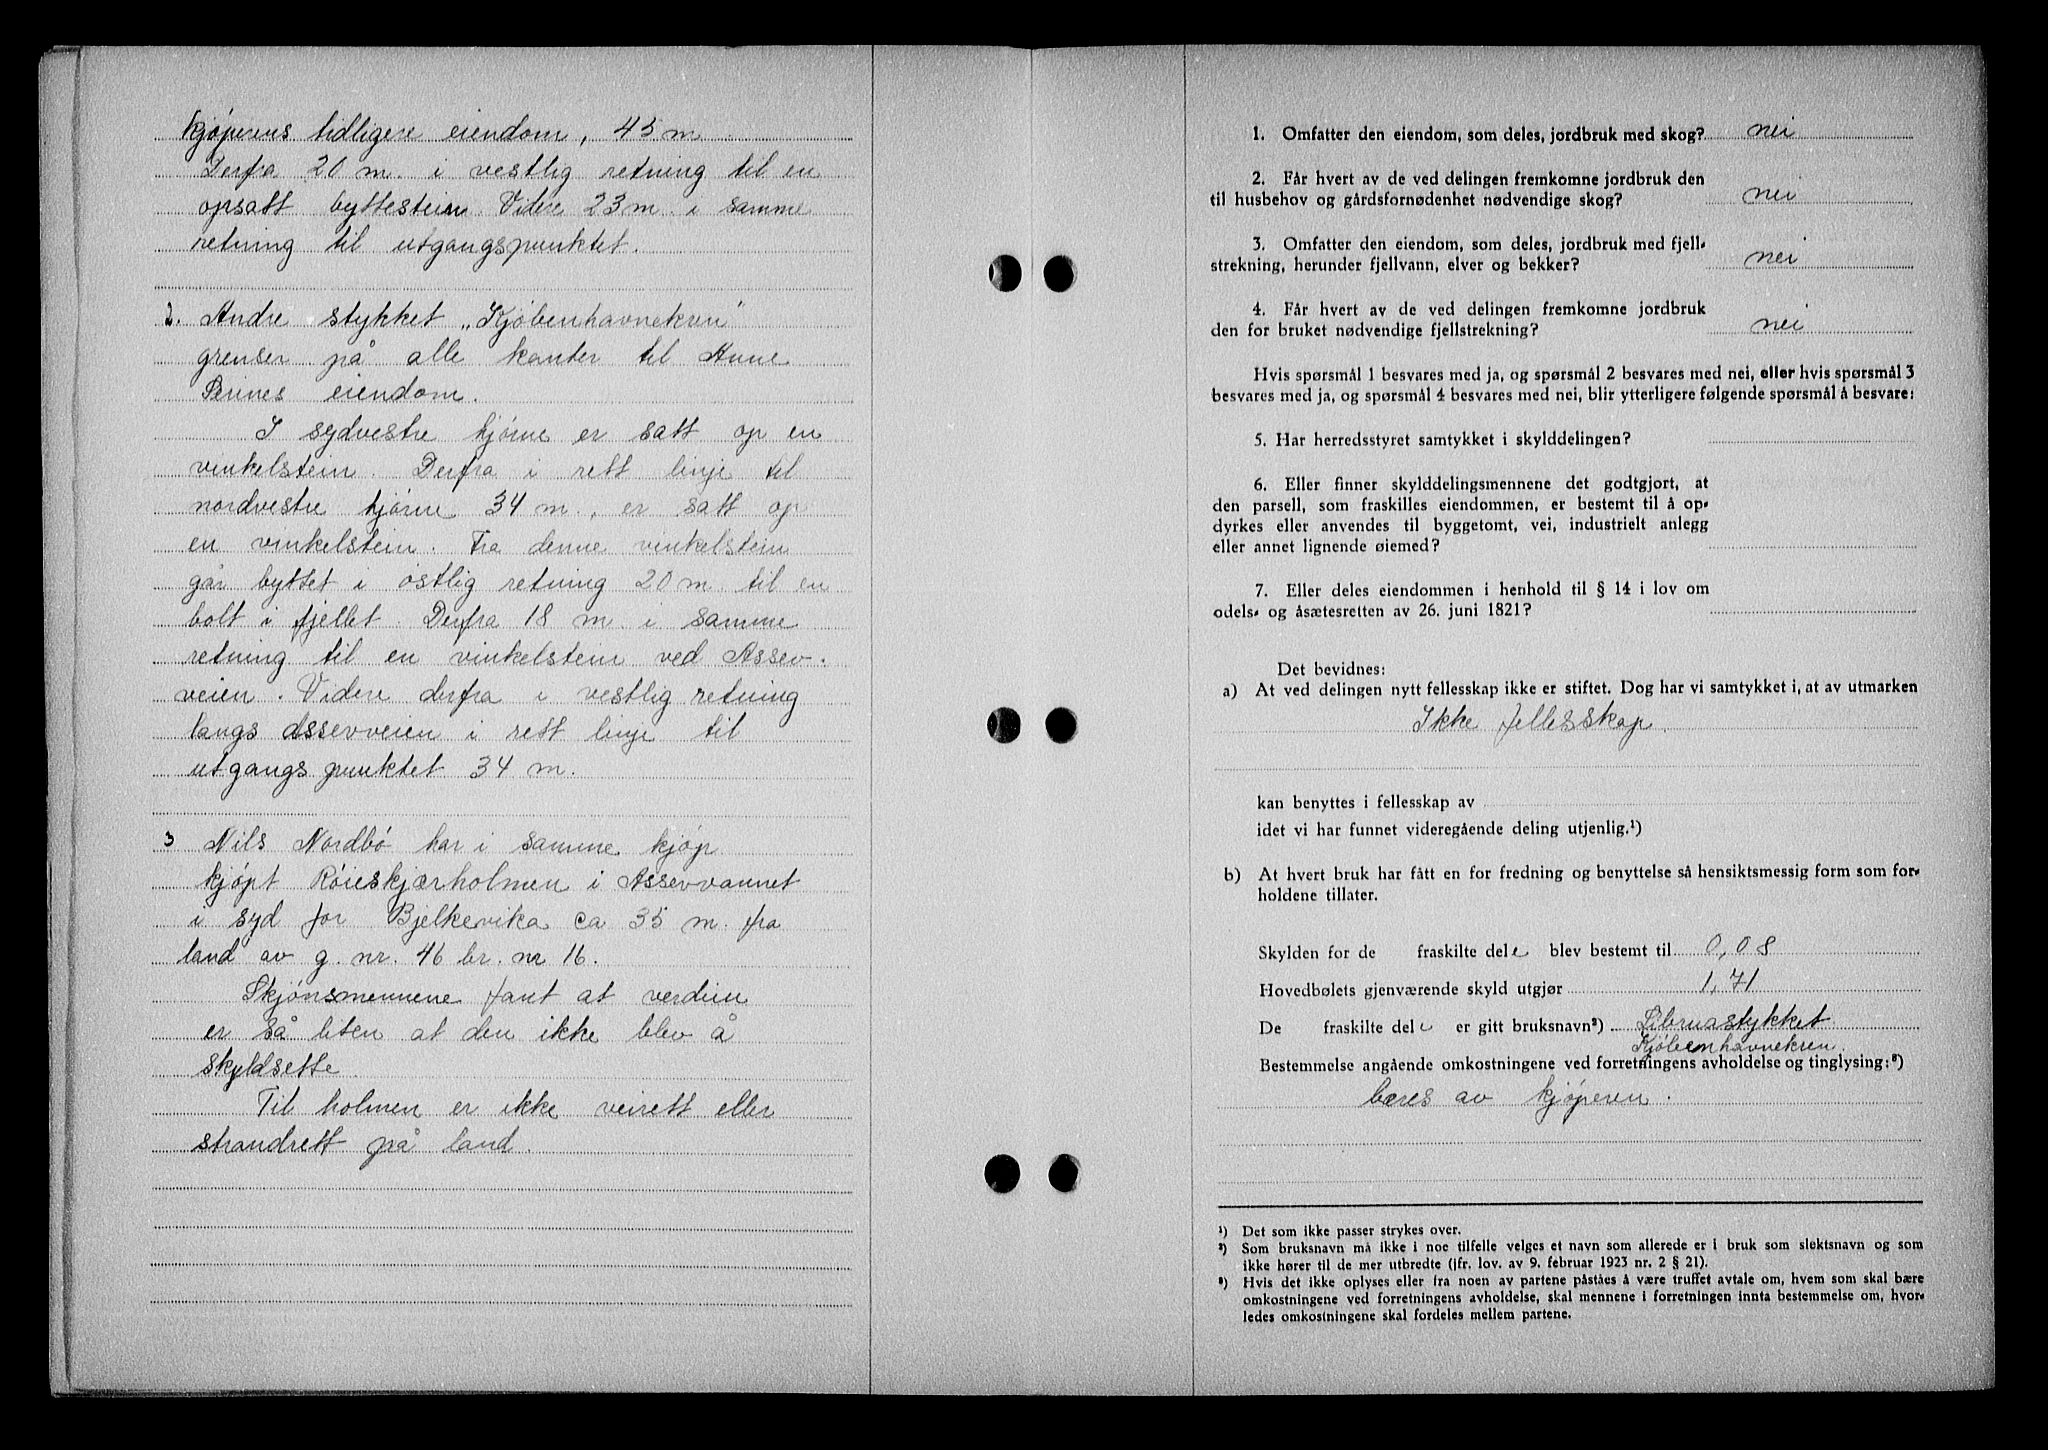 kjøperens tidligere eiendom, 45 m.
Derfra 20 m. i vestlig retning til en
opsatt byttestein. Videre 23 m. i samme
retning til utgangspunktet.
2. Andre stykket „Kjöbenhavnekren"
grenser på alle kanter til Anne
Serines eiendom.
I sydvestre hjörne er satt op en
vinkelstein. Derfra i rett linje til
nordvestre hjörne 34 m., er satt op
en vinkelstein. Fra denne vinkelstein
går byttet i östlig retning 20 m. til en
bolt i fjellet. Derfra 18 m. i samme
retning til en vinkelstein ved Assev-
veien. Videre derfra i vestlig retning
langs Assevveien i rett linje til
utgangspunktet 34 m.
3 Nils Nordbö har i samme kjöp
kjöpt Röieskjærholmen i Assevvannet
i syd for Bjelkevika ca 35 m. fra
land av g. nr. 46 br. nr 16.
Skjönsmennene fant at verdien
er så liten at den ikke blev å
skyldsette.
Til holmen er ikke veirett eller
strandrett på land.
1. Omfatter den eiendom, som deles, jordbruk med skog? nei
2. Får hvert av de ved delingen fremkomne jordbruk den
til husbehov og gårdsfornødenhet nødvendige skog? nei
3. Omfatter den eiendom, som deles, jordbruk med fjell-
strekning, herunder fjellvann, elver og bekker? nei
4. Får hvert av de ved delingen fremkomne jordbruk
den for bruket nødvendige fjellstrekning? nei
Hvis spørsmål 1 besvares med ja, og spørsmål 2 besvares med nei, eller hvis spørsmål 3
besvares med ja, og spørsmål 4 besvares med nei, blir ytterligere følgende spørsmål å besvare:
5. Har herredsstyret samtykket i skylddelingen?
6. Eller finner skylddelingsmennene det godtgjort, at
den parsell, som fraskilles eiendommen, er bestemt til å op-
dyrkes eller anvendes til byggetomt, vei, industrielt anlegg
eller annet lignende øiemed?
7. Eller deles eiendommen i henhold til § 14 i lov om
odels- og åsætesretten av 26. juni 1821?
Det bevidnes:
a) At ved delingen nytt fellesskap ikke er stiftet. Dog har vi samtykket i, at av utmarken
Ikke fellesskap.
kan benyttes i fellesskap av
idet vi har funnet videregående deling utjenlig.¹)
b) At hvert bruk har fått en for fredning og benyttelse så hensiktsmessig form som for-
holdene tillater.
Skylden for de fraskilte dele blev bestemt til 0,08
Hovedbølets gjenværende skyld utgjør 1,71
De fraskilte dele er gitt bruksnavn²) Librua stykket
Kjöbenhavnekren.
Bestemmelse angående omkostningene ved forretningens avholdelse og tinglysing:³)
bæres av kjøperen.
¹) Det som ikke passer strykes over.
²) Som bruksnavn må ikke i noe tilfelle velges et navn som allerede er i bruk som slektsnavn og som
ikke hører til de mer utbredte (jfr. lov. av 9. februar 1923 nr. 2 § 21).
³) Hvis det ikke oplyses eller fra noen av partene påståes å være truffet avtale om, hvem som skal bære
omkostningene ved forretningens avholdelse, skal mennene i forretningen innta bestemmelse om, hvor-
ledes omkostningene skal fordeles mellem partene.